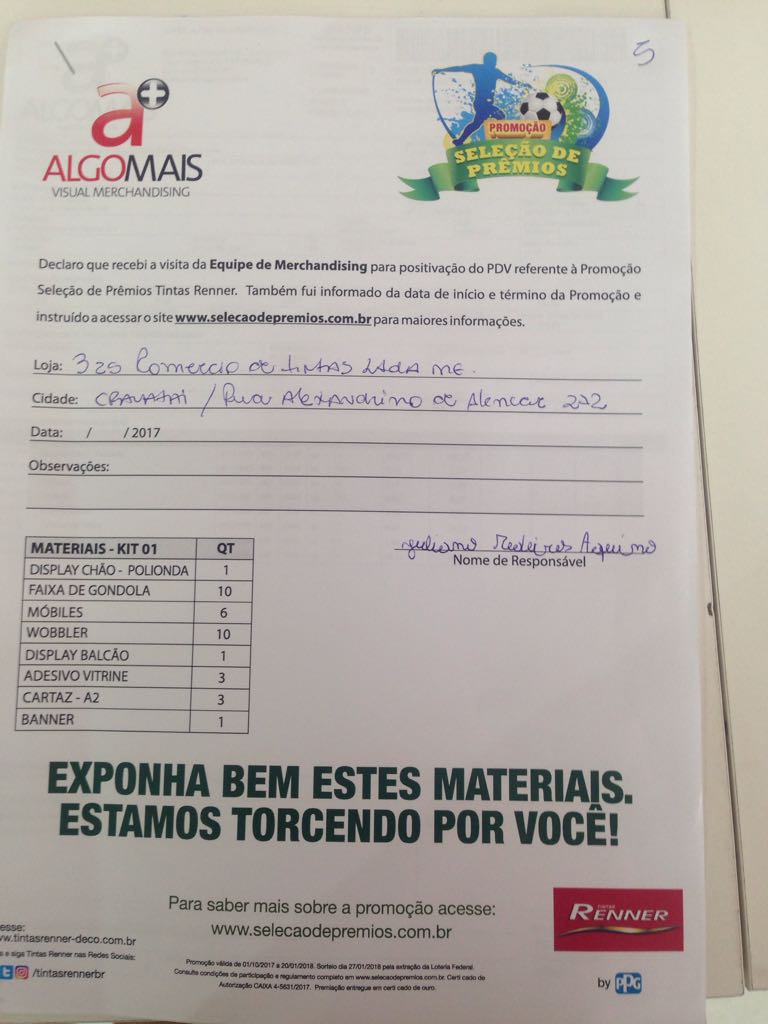 5
a+
ALGOMAIS
VISUAL MERCHANDISING
PROMOÇÃO
SELEÇÃO DE
PRÊMIOS
Declaro que recebi a visita da Equipe de Merchandising para positivação do PDV referente à Promoção
Seleção de Prêmios Tintas Renner. Também fui informado da data de início e término da Promoção e
instruído a acessar o site www.selecaodepremios.com.br para maiores informações.
Loja: 325 Comercio de tintas Ltda ME.
Cidade: GRAVATAI / Rua Alexandrino de Alencar 272
Data: / / 2017
Observações:
Juliano Medeiros Aquino
Nome de Responsável
MATERIAIS - KIT 01 QT
DISPLAY CHÃO - POLIONDA 1
FAIXA DE GONDOLA 10
MÓBILES 6
WOBBLER 10
DISPLAY BALCÃO 1
ADESIVO VITRINE 3
CARTAZ - A2 3
BANNER 1
EXPONHA BEM ESTES MATERIAIS.
ESTAMOS TORCENDO POR VOCÊ!
Para saber mais sobre a promoção acesse:
www.selecaodepremios.com.br
esse:
w.tintasrenner-deco.com.br
s e siga Tintas Renner nas Redes Sociais:
/tintasrennerbr
Promoção válida de 01/10/2017 a 20/01/2018. Sorteio dia 27/01/2018 pela extração da Loteria Federal.
Consulte condições de participação e regulamento completo em www.selecaodepremios.com.br. Certi cado de
Autorização CAIXA 4-5631/2017. Premiação entregue em certi cado de ouro.
TINTAS
RENNER
by PPG